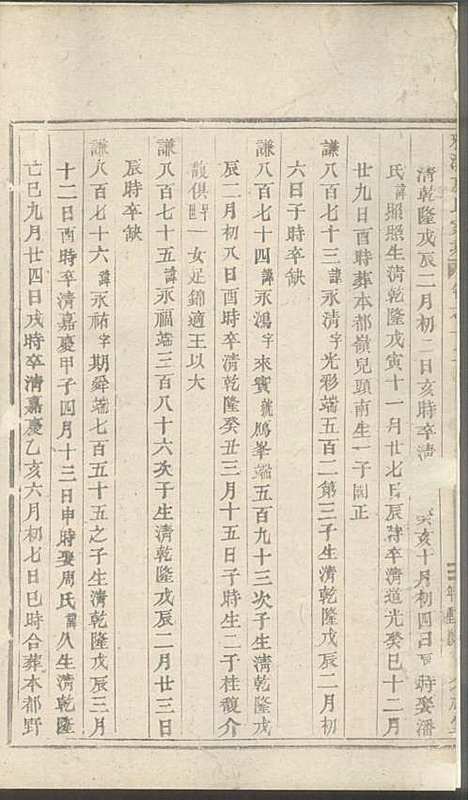 清乾隆戊辰二月初二日亥時卒清 癸亥十月初四日 時娶潘
氏諱照照生清乾隆戊寅十一月廿七日辰時卒清道光癸巳十二月
廿九日酉時葬本都嶺兒頭南生一子國正
謙八百七十三諱永清字光彩端五百二第三子生清乾隆戊辰二月初
六日子時卒缺
謙八百七十四諱永鴻字來賓號鵬峯端五百九十三次子生清乾隆戊
辰二月初八日酉時卒清乾隆癸丑三月十五日子時生二子桂馥介
馥俱早世一女足錦適王以大
謙八百七十五諱永福端三百八十六次子生清乾隆戊辰二月廿三日
辰時卒缺
謙八百七十六諱永祐字期舜端七百五十五之子生清乾隆戊辰三月
十二日酉時卒清嘉慶甲子四月十三日申時娶周氏諱久生清乾隆
亡巳九月廿四日戌時卒清嘉慶乙亥六月初七日巳時合葬本都野